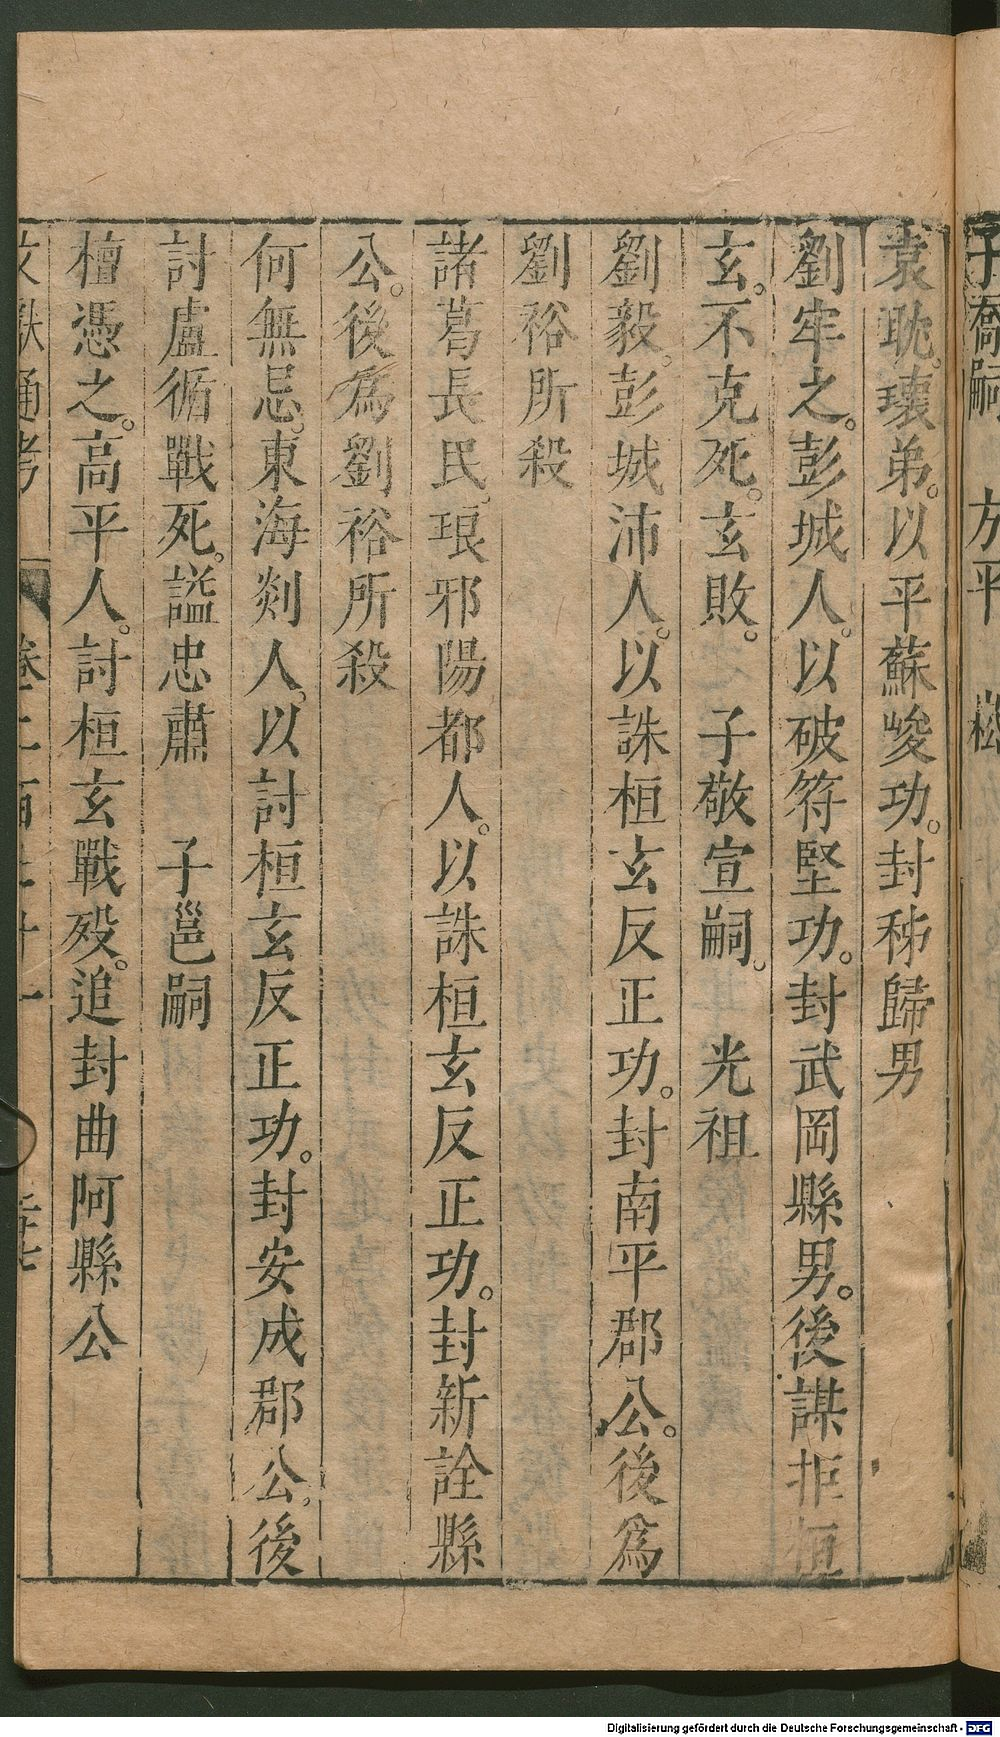 子喬嗣　方平　崧
袁耽。瓌弟。以平蘇峻功。封秭歸男
劉牢之。彭城人。以破符堅功。封武岡縣男。後謀拒桓
玄。不克死。玄敗。　子敬宣嗣。　光祖
劉毅。彭城沛人。以誅桓玄反正功。封南平郡公。後爲
劉裕所殺
諸葛長民。琅邪陽都人。以誅桓玄反正功。封新詮縣
公。後爲劉裕所殺
何無忌。東海剡人。以討桓玄反正功。封安成郡公。後
討盧循戰死。謚忠肅　子邕嗣
檀憑之。高平人。討桓玄戰歿。追封曲阿縣公
文獻通考　卷二百七十一　三十七
Digitalisierung gefördert durch die Deutsche Forschungsgemeinschaft - DFG